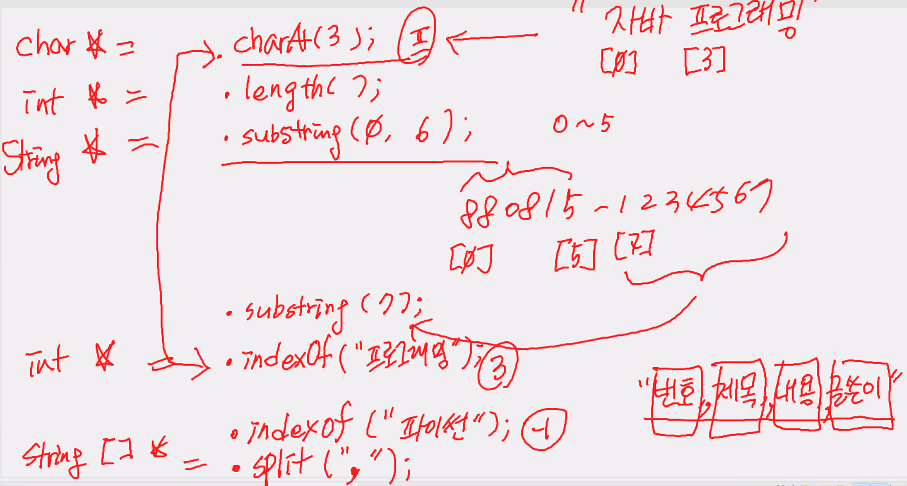 "자바 프로그래밍
char * = .charAt(3); 프 ←
[0] [3]
int * = .length();
String * = .substring(0, 6); 0~5
880815-1234567
[0] [5] [7]
.substring(7);
int * = .indexOf("프로그래밍"); 3
"번호,제목,내용,글쓴이"
.indexof("파이썬"); -1
String [] * = .split(",");